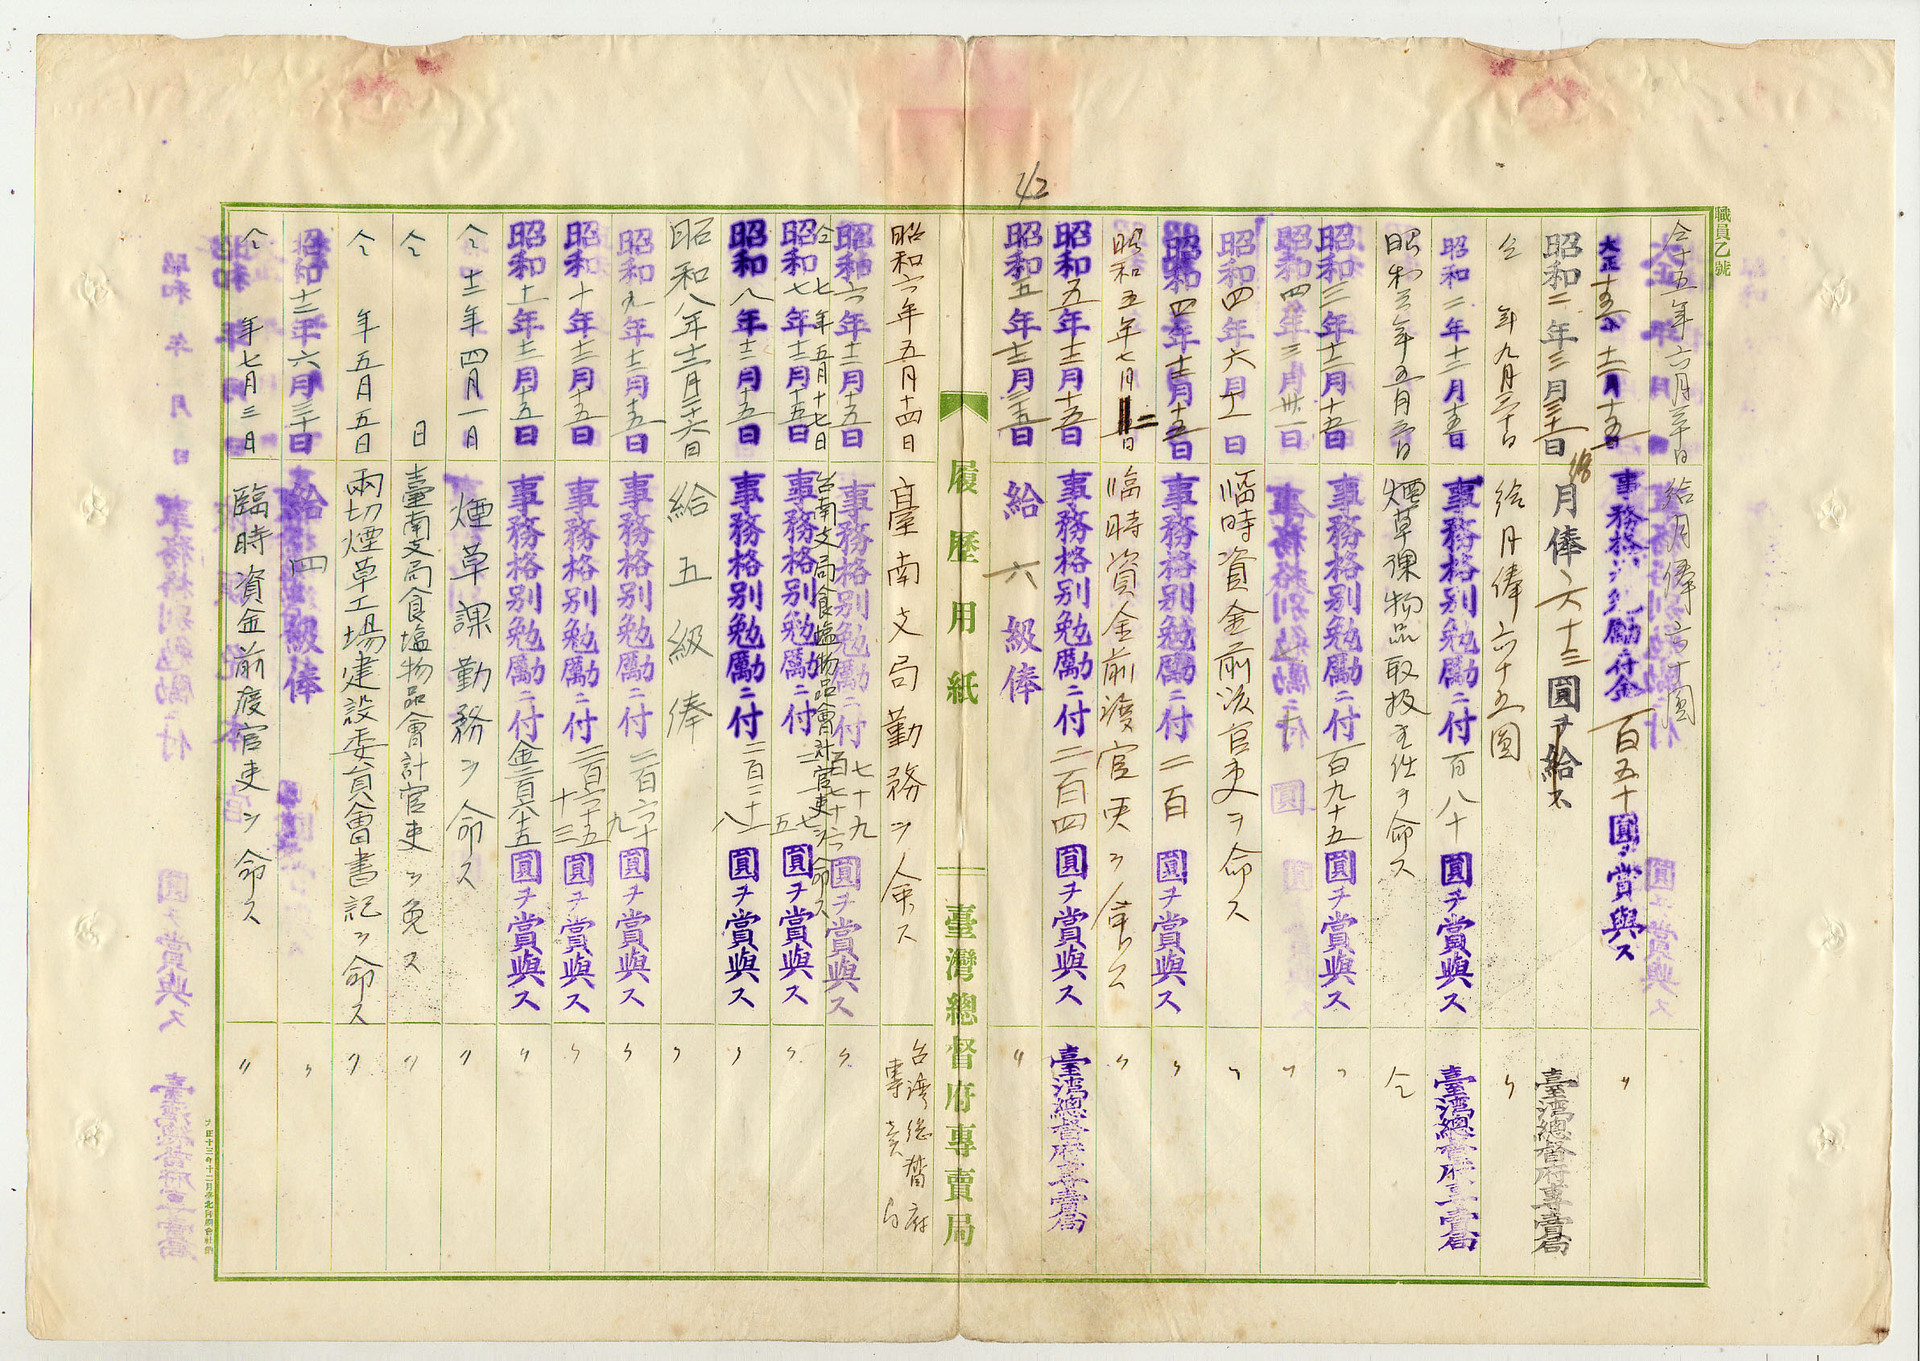 42
職員乙號
仝十五年六月三十日 給月俸六十圓
大正十五年十二月十五日 事務格別勉勵ニ付金百五十圓ヲ賞與ス 〃
昭和二年三月三十一日 月俸六十三圓ヲ給ス 臺灣總督府專賣局
仝 年九月三十日 給月俸六十五圓 〃
昭和二年十二月十五日 事務格別勉勵ニ付百八十圓ヲ賞與ス 臺灣總督府專賣局
昭和三年五月 日 煙草課物品取扱主任ヲ命ス 仝
昭和三年十二月十五日 事務格別勉勵ニ付百九十五圓ヲ賞與ス 〃
昭和四年三月卅一日 〃
昭和四年六月十一日 臨時資金前渡官吏ヲ命ス 〃
昭和四年十二月十五日 事務格別勉勵ニ付二百圓ヲ賞與ス 〃
昭和五年七月二日 臨時資金前渡官吏ヲ命ス 〃
昭和五年十二月十五日 事務格別勉勵ニ付二百四圓ヲ賞與ス 臺灣總督府專賣局
昭和五年十二月三十五日 給六級俸 〃
履歷用紙 臺灣總督府專賣局
昭和六年五月十四日 臺南支局勤務ヲ命ス 台湾総督府專賣局
昭和六年十二月十五日 事務格別勉勵ニ付百七十九圓ヲ賞與ス 〃
仝七年五月十七日 台南支局食塩物品會計官吏ヲ命ス
昭和七年十二月十五日 事務格別勉勵ニ付 圓ヲ賞與ス 〃
昭和八年十二月十五日 事務格別勉勵ニ付二百二十八圓ヲ賞與ス 〃
昭和八年十二月二十六日 給五級俸 〃
昭和九年十二月十五日 事務格別勉勵ニ付二百六十九圓ヲ賞與ス 〃
昭和十年十二月十五日 事務格別勉勵ニ付 圓ヲ賞與ス 〃
昭和十一年十二月十五日 事務格別勉勵ニ付金二百六十五圓ヲ賞與ス 〃
仝十二年四月一日 煙草課勤務ヲ命ス 〃
仝 日 臺南支局食塩物品會計官吏ヲ免ス 〃
仝 年五月五日 兩切煙草工場建設委員會書記ヲ命ス 〃
昭和十二年六月三十日 給四級俸 〃
仝 年七月三日 臨時資金前渡官吏ヲ命ス 〃